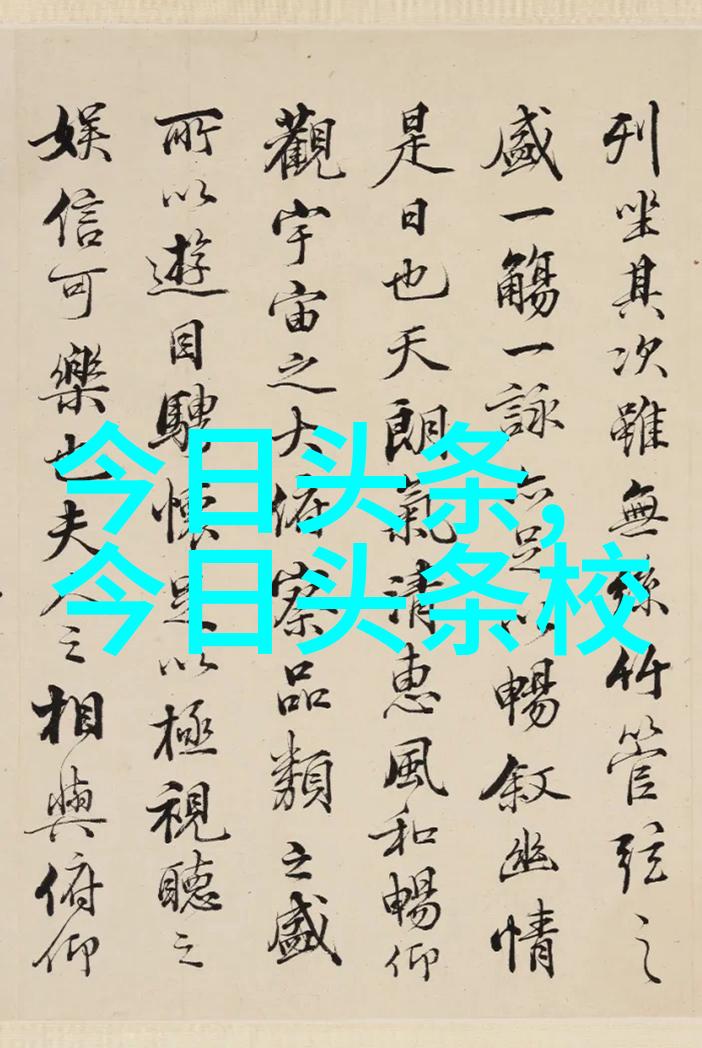 列坐其次雖無絲竹管弦之
盛一觴一詠亦足以暢叙幽情
是日也天朗氣清惠風和暢仰
觀宇宙之大俯察品類之盛
所以遊目騁懷足以極視聽之
娛信可樂也夫人之相與俯仰
今日头条,
今日头条校